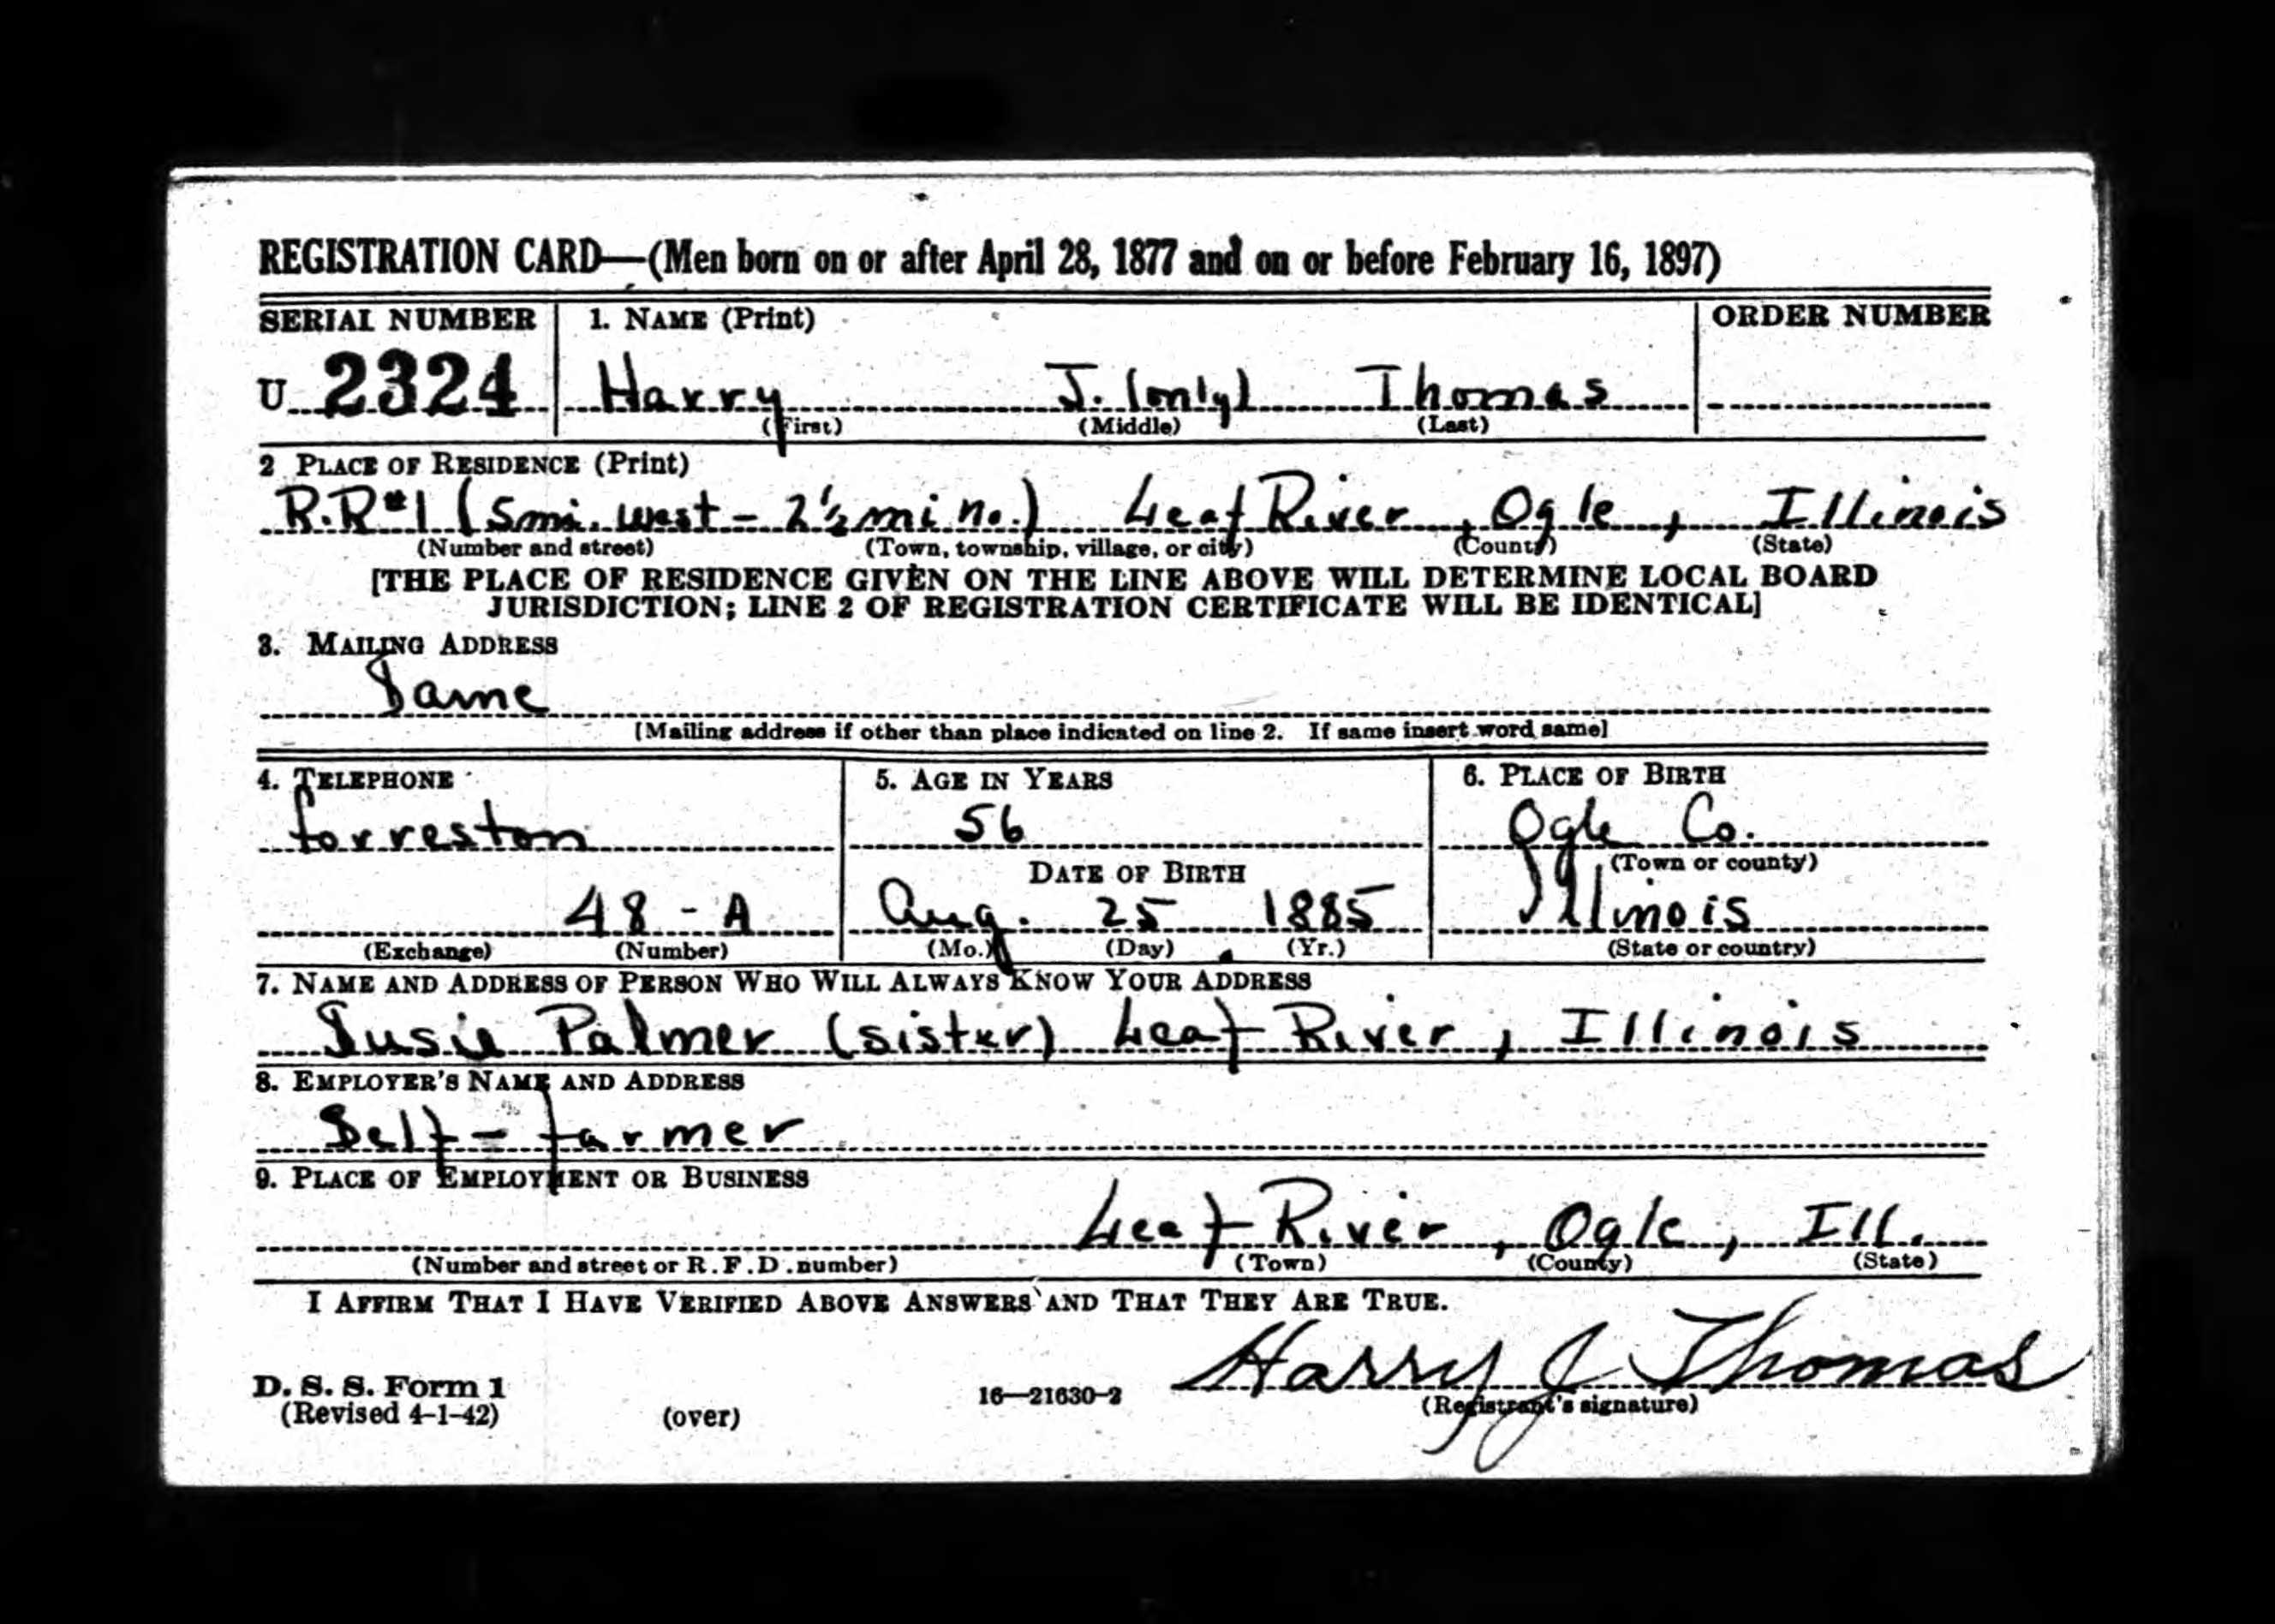 REGISTRATION CARD—(Men born on or after April 28, 1877 and on or before February 16, 1897)
SERIAL NUMBER 1. NAME (Print) ORDER NUMBER
U 2324 Harry J. (only) Thomas
(First) (Middle) (Last)
2 PLACE OF RESIDENCE (Print)
R.R#1 (5mi. west - 2½ mi no.) Leaf River, Ogle, Illinois
(Number and street) (Town, township, village, or city) (County) (State)
[THE PLACE OF RESIDENCE GIVEN ON THE LINE ABOVE WILL DETERMINE LOCAL BOARD
JURISDICTION; LINE 2 OF REGISTRATION CERTIFICATE WILL BE IDENTICAL]
3. MAILING ADDRESS
Same
[Mailing address if other than place indicated on line 2. If same insert word same]
4. TELEPHONE 5. AGE IN YEARS 6. PLACE OF BIRTH
forreston 56 Ogle Co.
DATE OF BIRTH (Town or county)
48-A Aug. 25 1885 Illinois
(Exchange) (Number) (Mo.) (Day) (Yr.) (State or country)
7. NAME AND ADDRESS OF PERSON WHO WILL ALWAYS KNOW YOUR ADDRESS
Susie Palmer (sister) Leaf River, Illinois
8. EMPLOYER'S NAME AND ADDRESS
Self - farmer
9. PLACE OF EMPLOYMENT OR BUSINESS
Leaf River, Ogle, Ill.
(Number and street or R.F.D. number) (Town) (County) (State)
I AFFIRM THAT I HAVE VERIFIED ABOVE ANSWERS AND THAT THEY ARE TRUE.
Harry J Thomas
D. S. S. Form 1 16—21630-2 (Registrant's signature)
(Revised 4-1-42) (over)